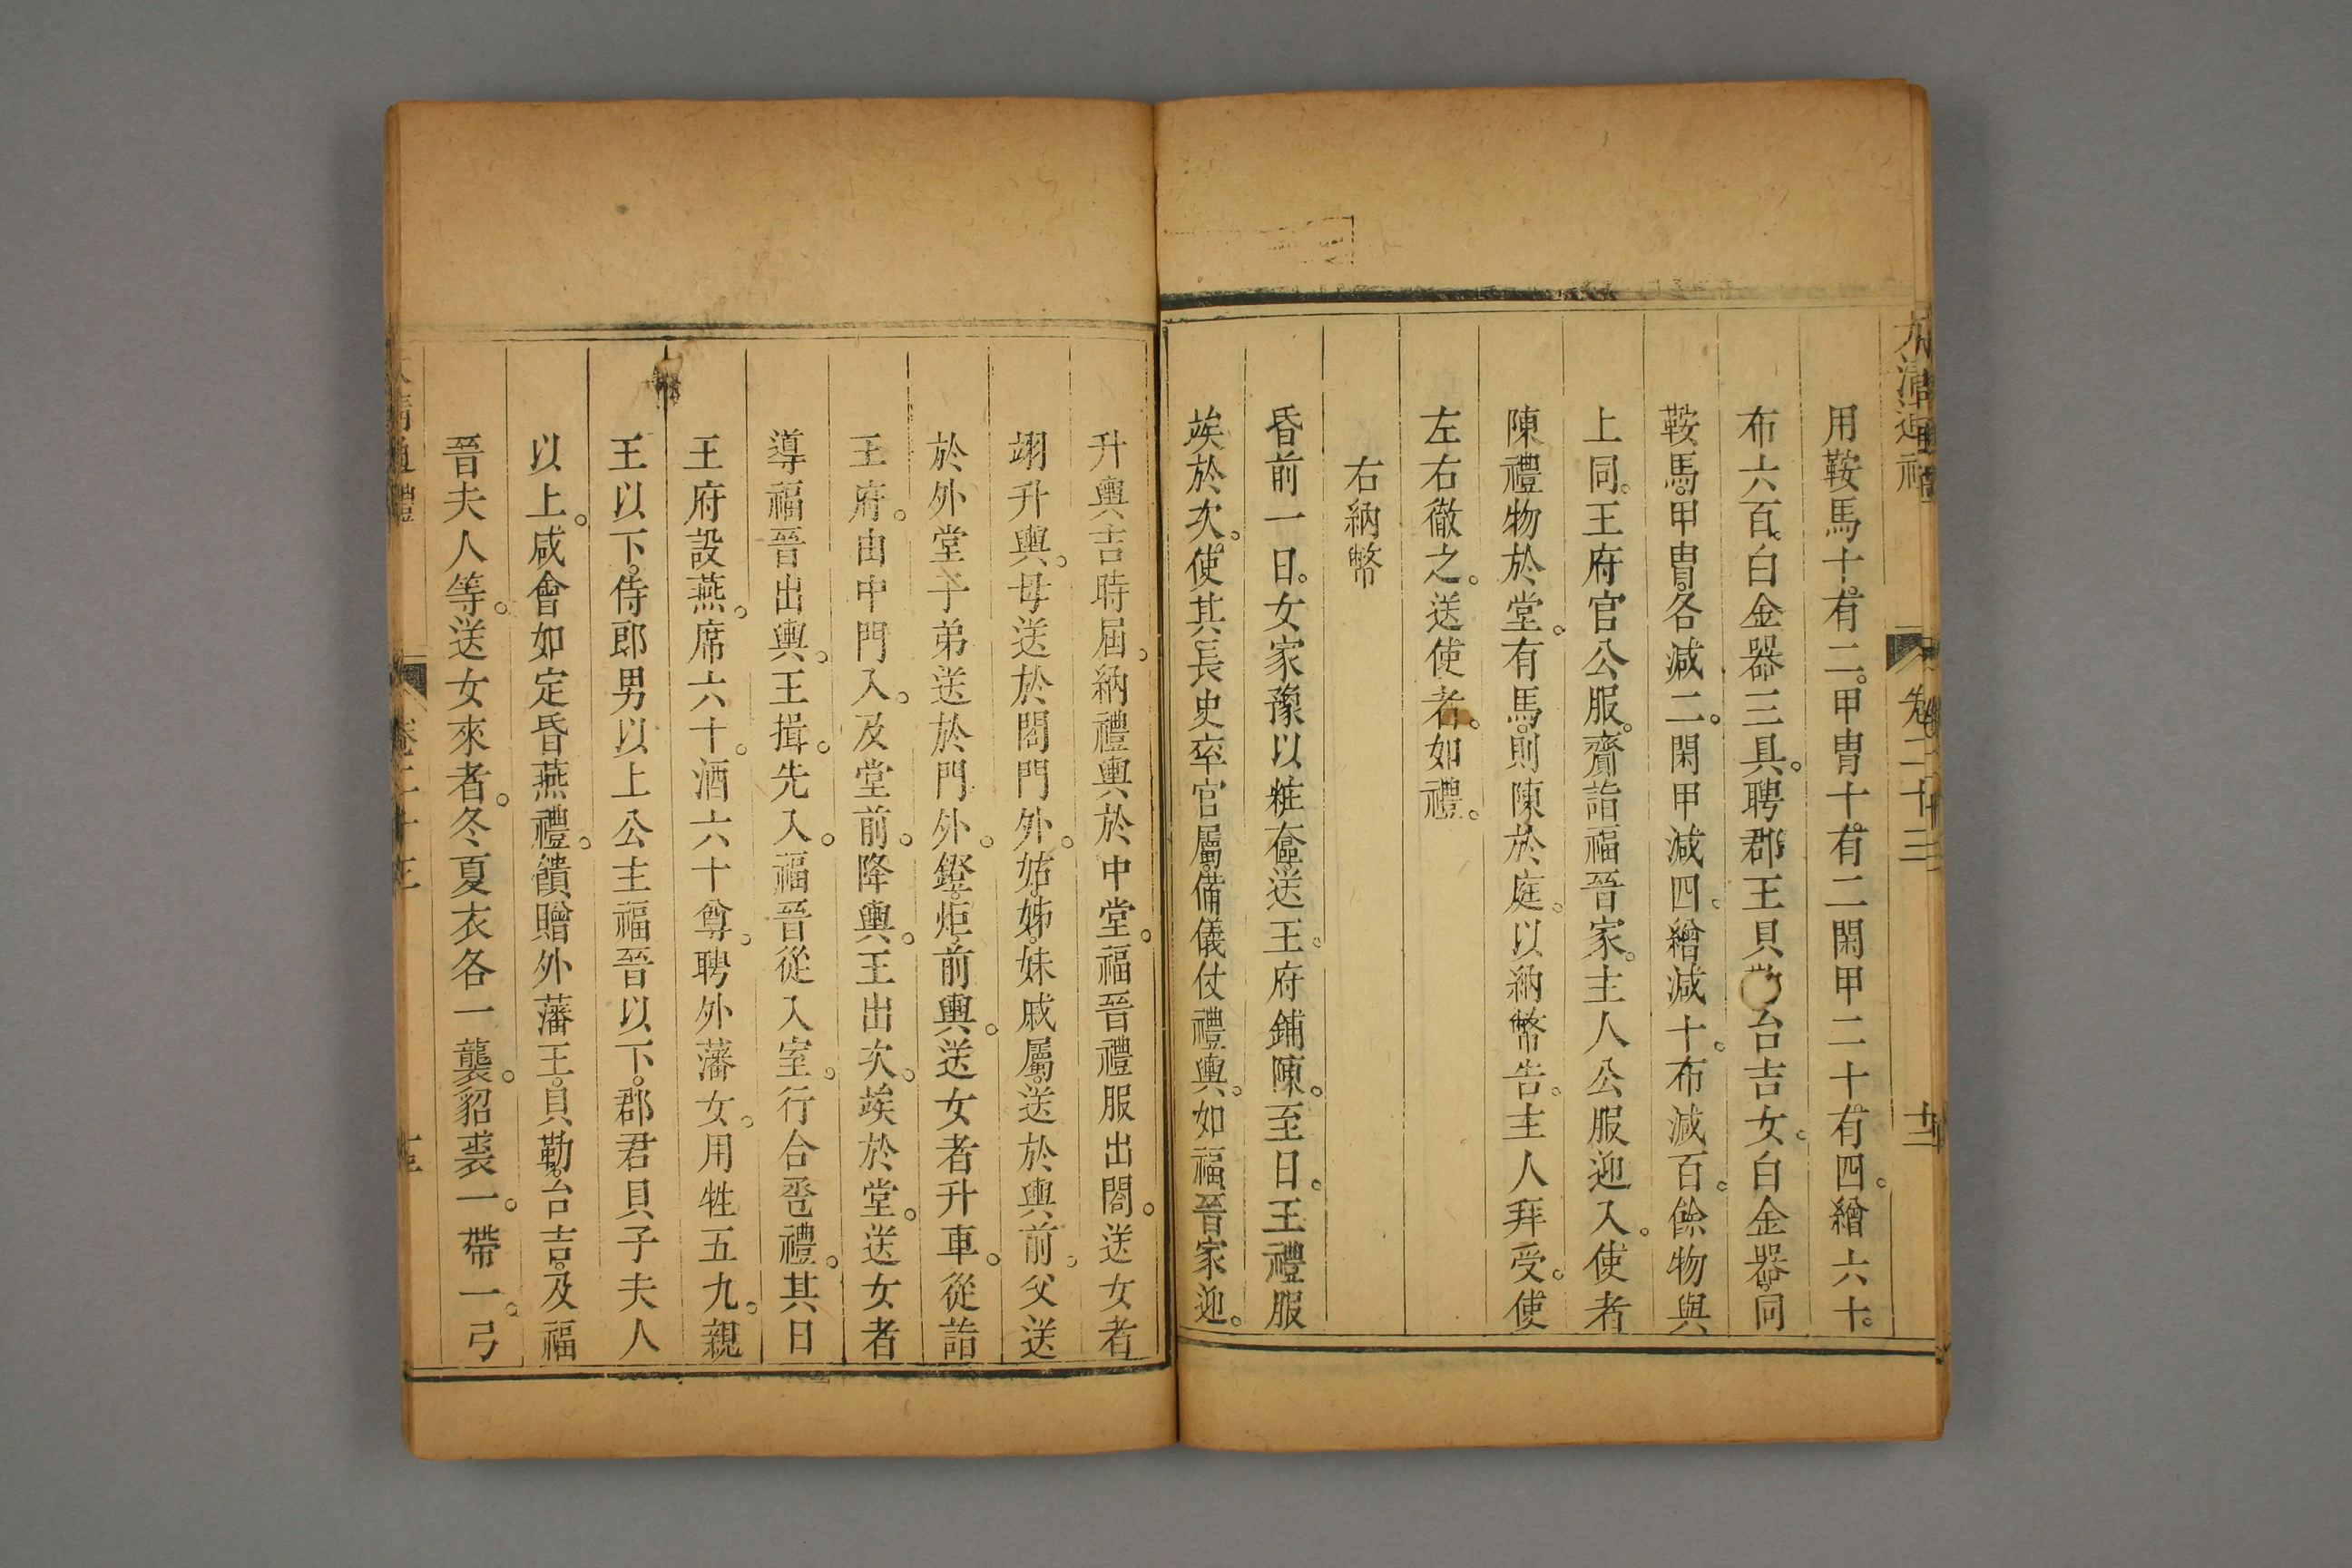 大清通禮 卷二十三 十二
用鞍馬十有二甲冑十有二閑甲二十有四。繒六十。
布六百。白金器三具。聘郡王貝勒台吉女。白金器同
鞍馬甲冑各減二。閑甲減四。繒減十。布減百。餘物與
上同。王府官公服。齎詣福晉家。主人公服迎入。使者
陳禮物於堂。有馬則陳於庭。以納幣告。主人拜受。使
左右徹之。送使者。如禮。
右納幣
昏前一日。女家豫以粧奩送王。府鋪陳。至日。王禮服
竢於次。使其長史率官屬備儀仗禮輿。如福晉家迎。
升輿吉時屆。納禮輿於中堂。福晉禮服出閤。送女者
翊升輿。母送於閤門外。姑姊妹戚屬送於輿前。父送
於外堂子弟送於門外。鐙炬前輿。送女者升車。從詣
王府。由中門入。及堂前。降輿。王出次。竢於堂。送女者
導福晉出輿。王揖。先入。福晉從入室。行合巹禮。其日
王府設燕。席六十。酒六十尊。聘外藩女。用牲五九。親
王以下。侍郎男以上公主福晉以下。郡君貝子夫人
以上。咸會如定昏燕禮。饋贈外藩王貝勒台吉及福
晉夫人等。送女來者。冬夏衣各一襲。貂裘一。帶一。弓
大清通禮 卷二十三